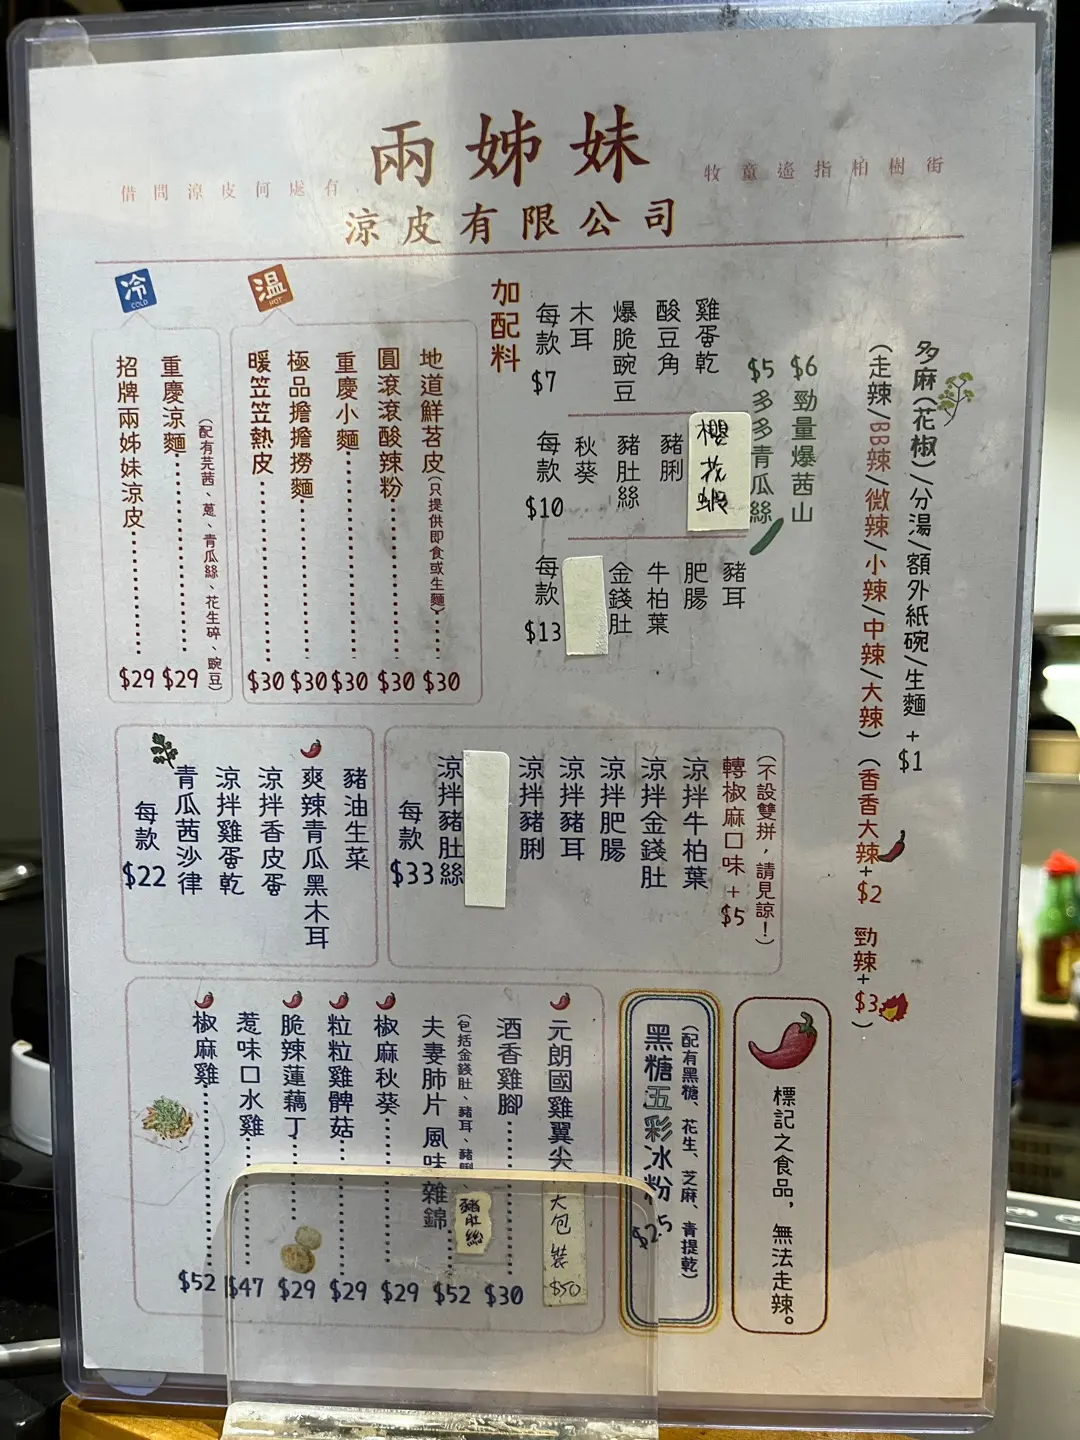 兩姊妹
借問涼皮何處有
牧童遙指柏樹街
涼皮有限公司
冷
COLD
招牌兩姊妹涼皮 $29
重慶涼麵 $29
(配有芫茜、蔥、青瓜絲、花生碎、豌豆)
温
HOT
暖笠笠熱皮 $30
極品擔擔撈麵 $30
重慶小麵 $30
圓滾滾酸辣粉 $30
地道鮮苕皮(只提供即食或生麵) $30
加配料
每款 $7
木耳
爆脆豌豆
酸豆角
雞蛋乾
每款 $10
秋葵
豬肚絲
豬脷
櫻花蝦
每款 $13
金錢肚
牛柏葉
肥腸
豬耳
$5 多多青瓜絲
$6 勁量爆茜山
多麻(花椒)/分湯/額外紙碗/生麵 + $1
(走辣/BB辣/微辣/小辣/中辣/大辣)
(香香大辣+$2 勁辣+$3)
每款 $22
青瓜茜沙律
涼拌雞蛋乾
涼拌香皮蛋
爽辣青瓜黑木耳
豬油生菜
每款 $33
涼拌豬肚絲
涼拌豬脷
涼拌豬耳
涼拌肥腸
涼拌金錢肚
涼拌牛柏葉
轉椒麻口味 + $5
(不設雙拼，請見諒！)
椒麻雞 $52
惹味口水雞 $47
脆辣蓮藕丁 $29
粒粒雞髀菇 $29
椒麻秋葵 $29
夫妻肺片 風味雜錦 $52
(包括金錢肚、豬耳、豬脷、
豬肚絲
酒香雞腳 $30
元朗國雞翼尖
大包裝 $50
黑糖五彩冰粉 $25
(配有黑糖、花生、芝麻、青提乾)
標記之食品，無法走辣。